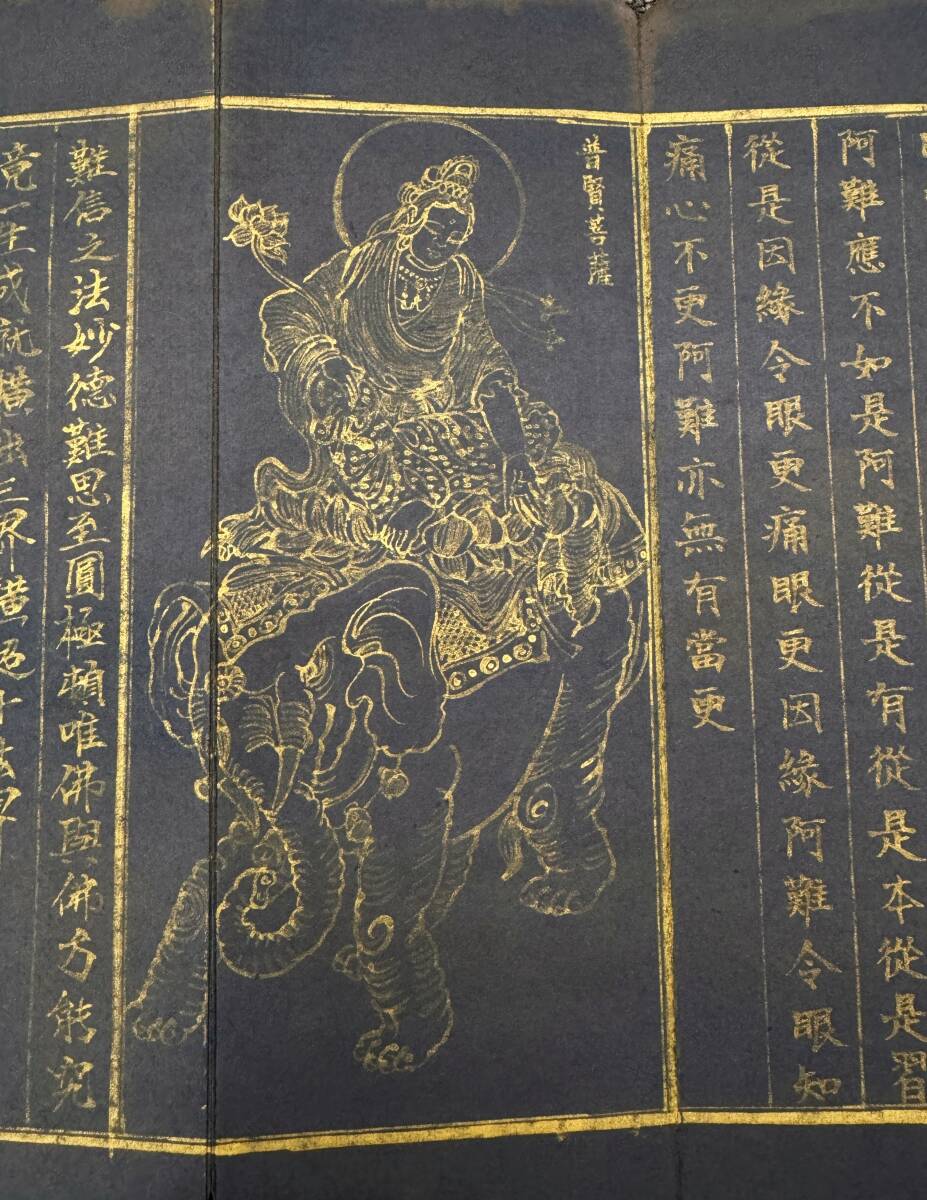 阿難應不如是阿難從是有從是本從是習
從是因緣令眼更痛眼更因緣阿難令眼知
痛心不更阿難亦無有當更
普賢菩薩
難信之法妙德難思至圓極頓唯佛與佛方能究
竟一生成就橫出三界橫